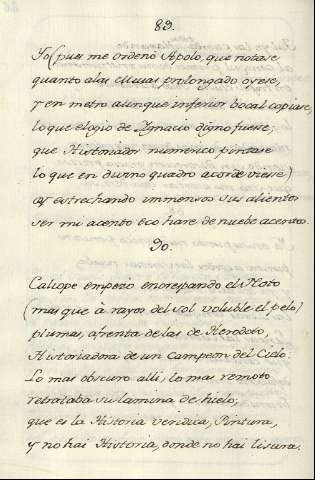 89.
Yo (pues me ordenò Apolo, que notase
quanto a las Musas prolongado oyese,
y en metro aunque inferior bocal copiase,
lo que elogio de Ignacio digno fuese;
que Historiador numerico pintase
lo que en divino quadro acorde viese)
oy estrechando immensos sus alientos
ser mi acento eco harè de nuebe acentos.
90.
Caliope empezò encrespando el
(mas que à rayos del Sol voluble el pelo)
plumas, afrenta de las de Herodoto,
Historiadora de un Campeon del Cielo.
Lo mas obscuro alli, lo mas remoto
retrataba su lamina de hielo;
que es la Historia veridica, Pintura,
y no hai Historia, donde no hai lisura.